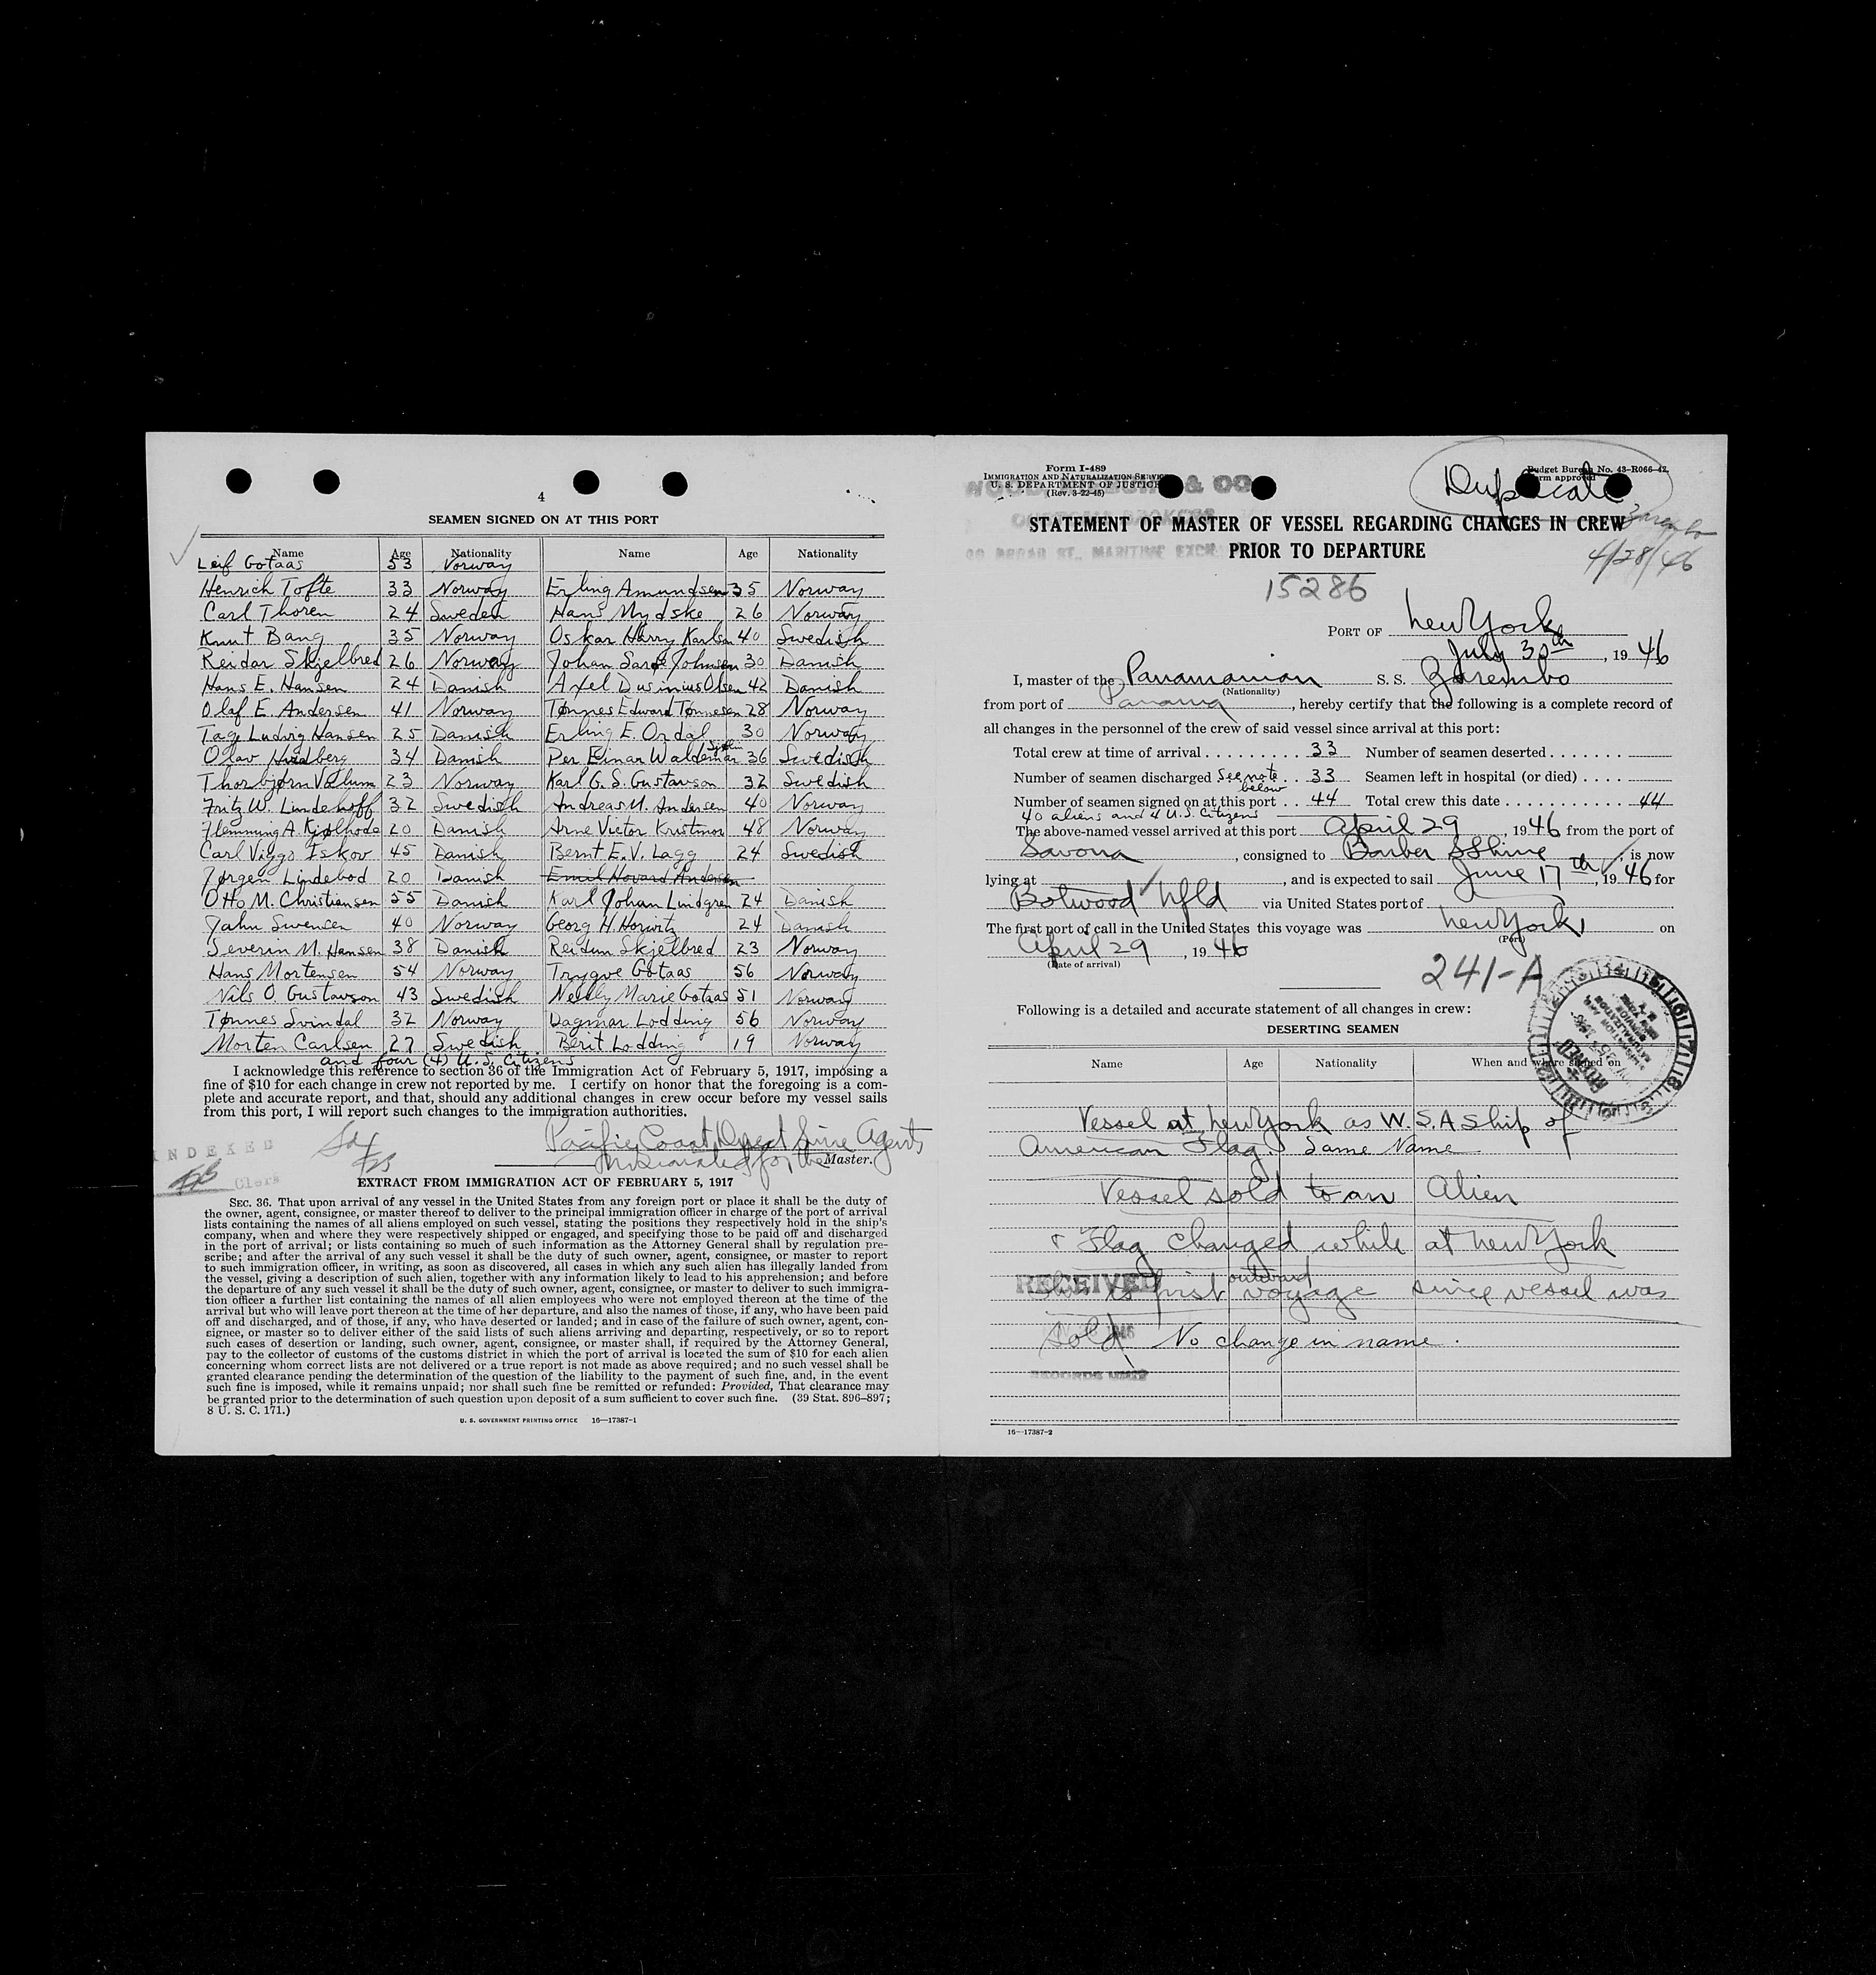 4
SEAMEN SIGNED ON AT THIS PORT
Name Age Nationality Name Age Nationality
Leif Gotaas 53 Norway
Henrich Tofte 33 Norway Erling Amundsen 35 Norway
Carl Thoren 24 Sweden Hans Mydske 26 Norway
Knut Bang 35 Norway Oskar Harry Karlsen 40 Swedish
Reidar Skjelbred 26 Norway Johan Johnsen 30 Danish
Hans E. Hansen 24 Danish Axel Olsen 42 Danish
Olaf E. Andersen 41 Norway Tønnes Edward Tønnesen 28 Norway
Tage Ludvig Hansen 25 Danish Erling E. Ordal 30 Norway
Olav 34 Danish Per Einar Waldemar 36 Swedish
Thorbjørn 23 Norway Karl G. S. Gustavson 32 Swedish
Fritz W. Lindehoff 32 Swedish Andreas M. Andersen 40 Norway
Flemming A. Kjølhode 20 Danish Arne Victor 48 Norway
Carl Viggo Iskov 45 Danish Bernt E. V. Lagg 24 Swedish
Jørgen Lindebod 20 Danish Emil Havard Andersen
Otto M. Christiensen 55 Danish Karl Johan Lindgren 24 Danish
Jahn Swensen 40 Norway Georg H. Horwitz 24 Danish
Severin M. Hansen 38 Danish Reidun Skjelbred 23 Norway
Hans Mortensen 54 Norway Trygve Gotaas 56 Norway
Nils O. Gustavson 43 Swedish Nelly Marie Gotaas 51 Norway
Tønnes Svindal 32 Norway Dagmar Lodding 56 Norway
Morten Carlsen 27 Swedish Berit Lodding 19 Norway
and four (4) U.S. Citizens
I acknowledge this reference to section 36 of the Immigration Act of February 5, 1917, imposing a
fine of $10 for each change in crew not reported by me. I certify on honor that the foregoing is a com-
plete and accurate report, and that, should any additional changes in crew occur before my vessel sails
from this port, I will report such changes to the immigration authorities.
Pacific Coast Direct Line Agents
for the Master.
INDEXED
Clerk
EXTRACT FROM IMMIGRATION ACT OF FEBRUARY 5, 1917
SEC. 36. That upon arrival of any vessel in the United States from any foreign port or place it shall be the duty of
the owner, agent, consignee, or master thereof to deliver to the principal immigration officer in charge of the port of arrival
lists containing the names of all aliens employed on such vessel, stating the positions they respectively hold in the ship's
company, when and where they were respectively shipped or engaged, and specifying those to be paid off and discharged
in the port of arrival; or lists containing so much of such information as the Attorney General shall by regulation pre-
scribe; and after the arrival of any such vessel it shall be the duty of such owner, agent, consignee, or master to report
to such immigration officer, in writing, as soon as discovered, all cases in which any such alien has illegally landed from
the vessel, giving a description of such alien, together with any information likely to lead to his apprehension; and before
the departure of any such vessel it shall be the duty of such owner, agent, consignee, or master to deliver to such immigra-
tion officer a further list containing the names of all alien employees who were not employed thereon at the time of the
arrival but who will leave port thereon at the time of her departure, and also the names of those, if any, who have been paid
off and discharged, and of those, if any, who have deserted or landed; and in case of the failure of such owner, agent, con-
signee, or master so to deliver either of the said lists of such aliens arriving and departing, respectively, or so to report
such cases of desertion or landing, such owner, agent, consignee, or master shall, if required by the Attorney General,
pay to the collector of customs of the customs district in which the port of arrival is located the sum of $10 for each alien
concerning whom correct lists are not delivered or a true report is not made as above required; and no such vessel shall be
granted clearance pending the determination of the question of the liability to the payment of such fine, and, in the event
such fine is imposed, while it remains unpaid; nor shall such fine be remitted or refunded: Provided, That clearance may
be granted prior to the determination of such question upon deposit of a sum sufficient to cover such fine. (39 Stat. 896-897;
8 U. S. C. 171.)
U. S. GOVERNMENT PRINTING OFFICE 16—17387-1
Form I-489
IMMIGRATION AND NATURALIZATION SERVICE
U. S. DEPARTMENT OF JUSTICE
(Rev. 3-22-45)
& CO
Budget Bureau No. 43-R066-42.
Form approved
Duplicate
STATEMENT OF MASTER OF VESSEL REGARDING CHANGES IN CREW
PRIOR TO DEPARTURE
Zarembo
4/28/46
BROAD ST., MARITIME EXCH
15286
PORT OF New York
July 30th, 1946
I, master of the Panamanian S. S. Zarembo
(Nationality)
from port of Panama, hereby certify that the following is a complete record of
all changes in the personnel of the crew of said vessel since arrival at this port:
Total crew at time of arrival 33 Number of seamen deserted
Number of seamen discharged See note below 33 Seamen left in hospital (or died)
Number of seamen signed on at this port 44 Total crew this date 44
40 aliens and 4 U.S. Citizens
The above-named vessel arrived at this port April 29, 1946 from the port of
Savona, consigned to Barber SS Line, is now
lying at , and is expected to sail June 17th, 1946 for
Botwood Nfld via United States port of
The first port of call in the United States this voyage was New York, on
(Port)
April 29, 1946
(Date of arrival)
241-A
Following is a detailed and accurate statement of all changes in crew:
DESERTING SEAMEN
Name Age Nationality When and where signed on
Vessel at New York as W.S.A Ship of
American Flag. Same Name
Vessel sold to an Alien
Flag changed while at New York
RECEIVED
first outward voyage since vessel was
sold. No change in name.
RECORDS UNIT
16—17387-2